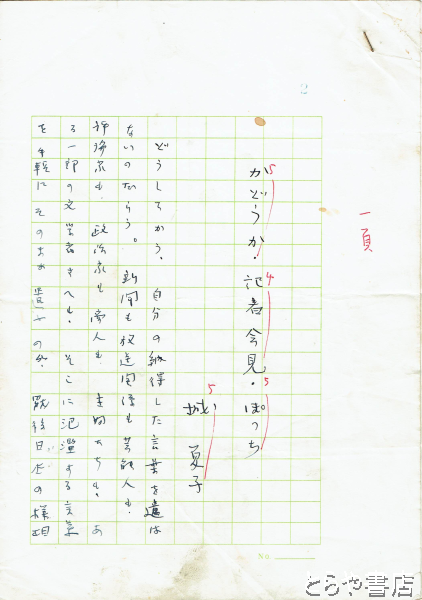 一頁
5 4 5
がどうか・記者会見・ぽっち
5
城 夏子
どうしてかう、自分の納得した言葉を遣は
ないのだらう。新聞も放送関係も芸能人も、
評論家も、政治家も商人も、主婦たちも、あ
る一部の文学者さへも、そこに氾濫する言葉
を手軽にそのまま遣ふの
戦後日本の様相
2
No.
とらや書店